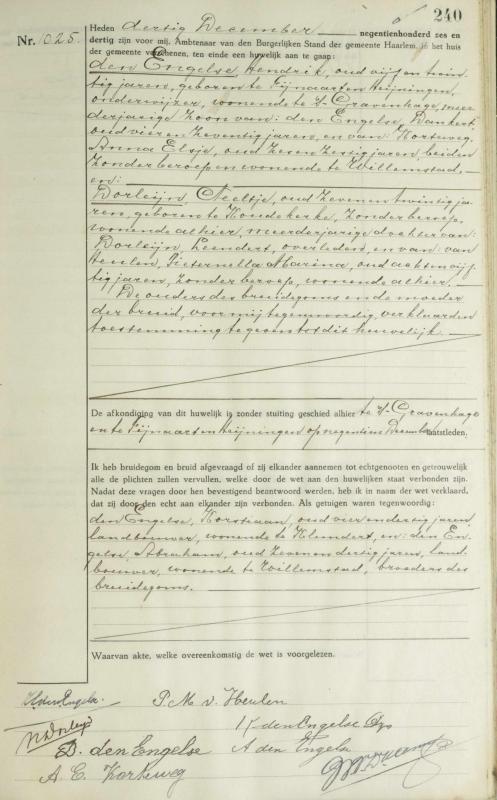 240
Nr. 1025.
Heden dertig December negentienhonderd zes en
dertig zijn voor mij, Ambtenaar van den Burgerlijken Stand der gemeente Haarlem, in het huis
der gemeente verschenen, ten einde een huwelijk aan te gaan:
den Engelse, Hendrik, oud vijf en twin
tig jaren, geboren te Fijnaart en Heijningen,
onderwijzer, wonende te 's-Gravenhage, meer
derjarige zoon van: den Engelse, Dankert,
oud vier en zeventig jaren, en van: Korteweg,
Anna Elsje, oud zes en zestig jaren, beiden
zonder beroep en wonende te Willemstad,
en:
Dorleijn, Neeltje, oud zeven en twintig ja-
ren, geboren te Koudekerke, zonder beroep,
wonende alhier, meerderjarige dochter van:
Dorleijn, Leendert, overleden, en van: van
Heulen, Pieternella Marina, oud acht en vijf
tig jaren, zonder beroep, wonende alhier.
De ouders des bruidegoms en de moeder
der bruid, voor mij tegenwoordig, verklaarden
toestemming te geven tot dit huwelijk.
De afkondiging van dit huwelijk is zonder stuiting geschied alhier te 's-Gravenhage
en te Fijnaart en Heijningen op negentien December laatstleden.
Ik heb bruidegom en bruid afgevraagd of zij elkander aannemen tot echtgenooten en getrouwelijk
alle de plichten zullen vervullen, welke door de wet aan den huwelijken staat verbonden zijn.
Nadat deze vragen door hen bevestigend beantwoord werden, heb ik in naam der wet verklaard,
dat zij door den echt aan elkander zijn verbonden. Als getuigen waren tegenwoordig:
den Engelse, oud vier en dertig jaren,
landbouwer, wonende te Klundert, en: den En
gelse, Abraham, oud zeven en dertig jaren, land
bouwer, wonende te Willemstad, broeders des
bruidegoms.
Waarvan akte, welke overeenkomstig de wet is voorgelezen.
H. den Engelse. P. M. v. Heulen
N. Dorleijn K den Engelse Dzn
D. den Engelse A den Engelse
A. E. Korteweg